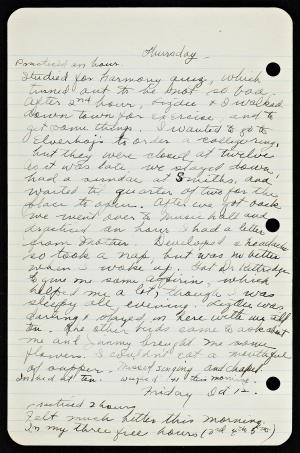 Thursday
Practiced an hour.
Studied for harmony quiz, which
turned out to be not so bad.
After 2nd hour, & I walked
down town for exercise, and to
get some things. I wanted to go to
to order a college ring,
but they were closed at twelve
so it was late. We stayed down,
had a sundae at Smiths, and
waited til quarter of two for the
place to open. After we got back
we went over to Music hall and
practiced an hour. Had a letter
from Mother. Developed a headache
so took a nap, but was no better
when I woke up. Got Dr.
to give me some aspirin, which
helped me a lot, though I was
sleepy all evening. was
darling & stayed in here with me all
the. The other kids came to ask about
me and brought me some
flowers. I couldn't eat a mouthful
of supper. Missed singing and chapel.
In bed at ten. this morning.
Friday Oct 12.
Practiced 2 hours
Felt much better this morning.
In my three free hours (2nd, 4th, 5th)